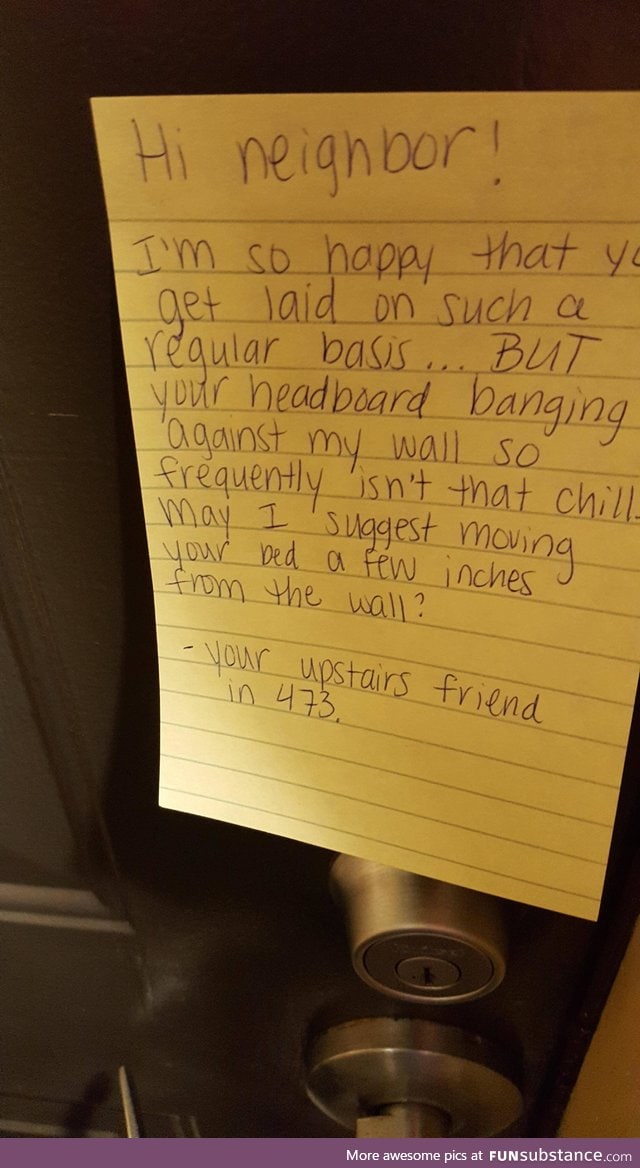 Hi neighbor!
I'm so happy that yo
get laid on such a
regular basis... BUT
your headboard banging
against my wall so
frequently isn't that chill.
May I suggest moving
your bed a few inches
from the wall?
- your upstairs friend
in 473.
More awesome pics at FUNsubstance.com